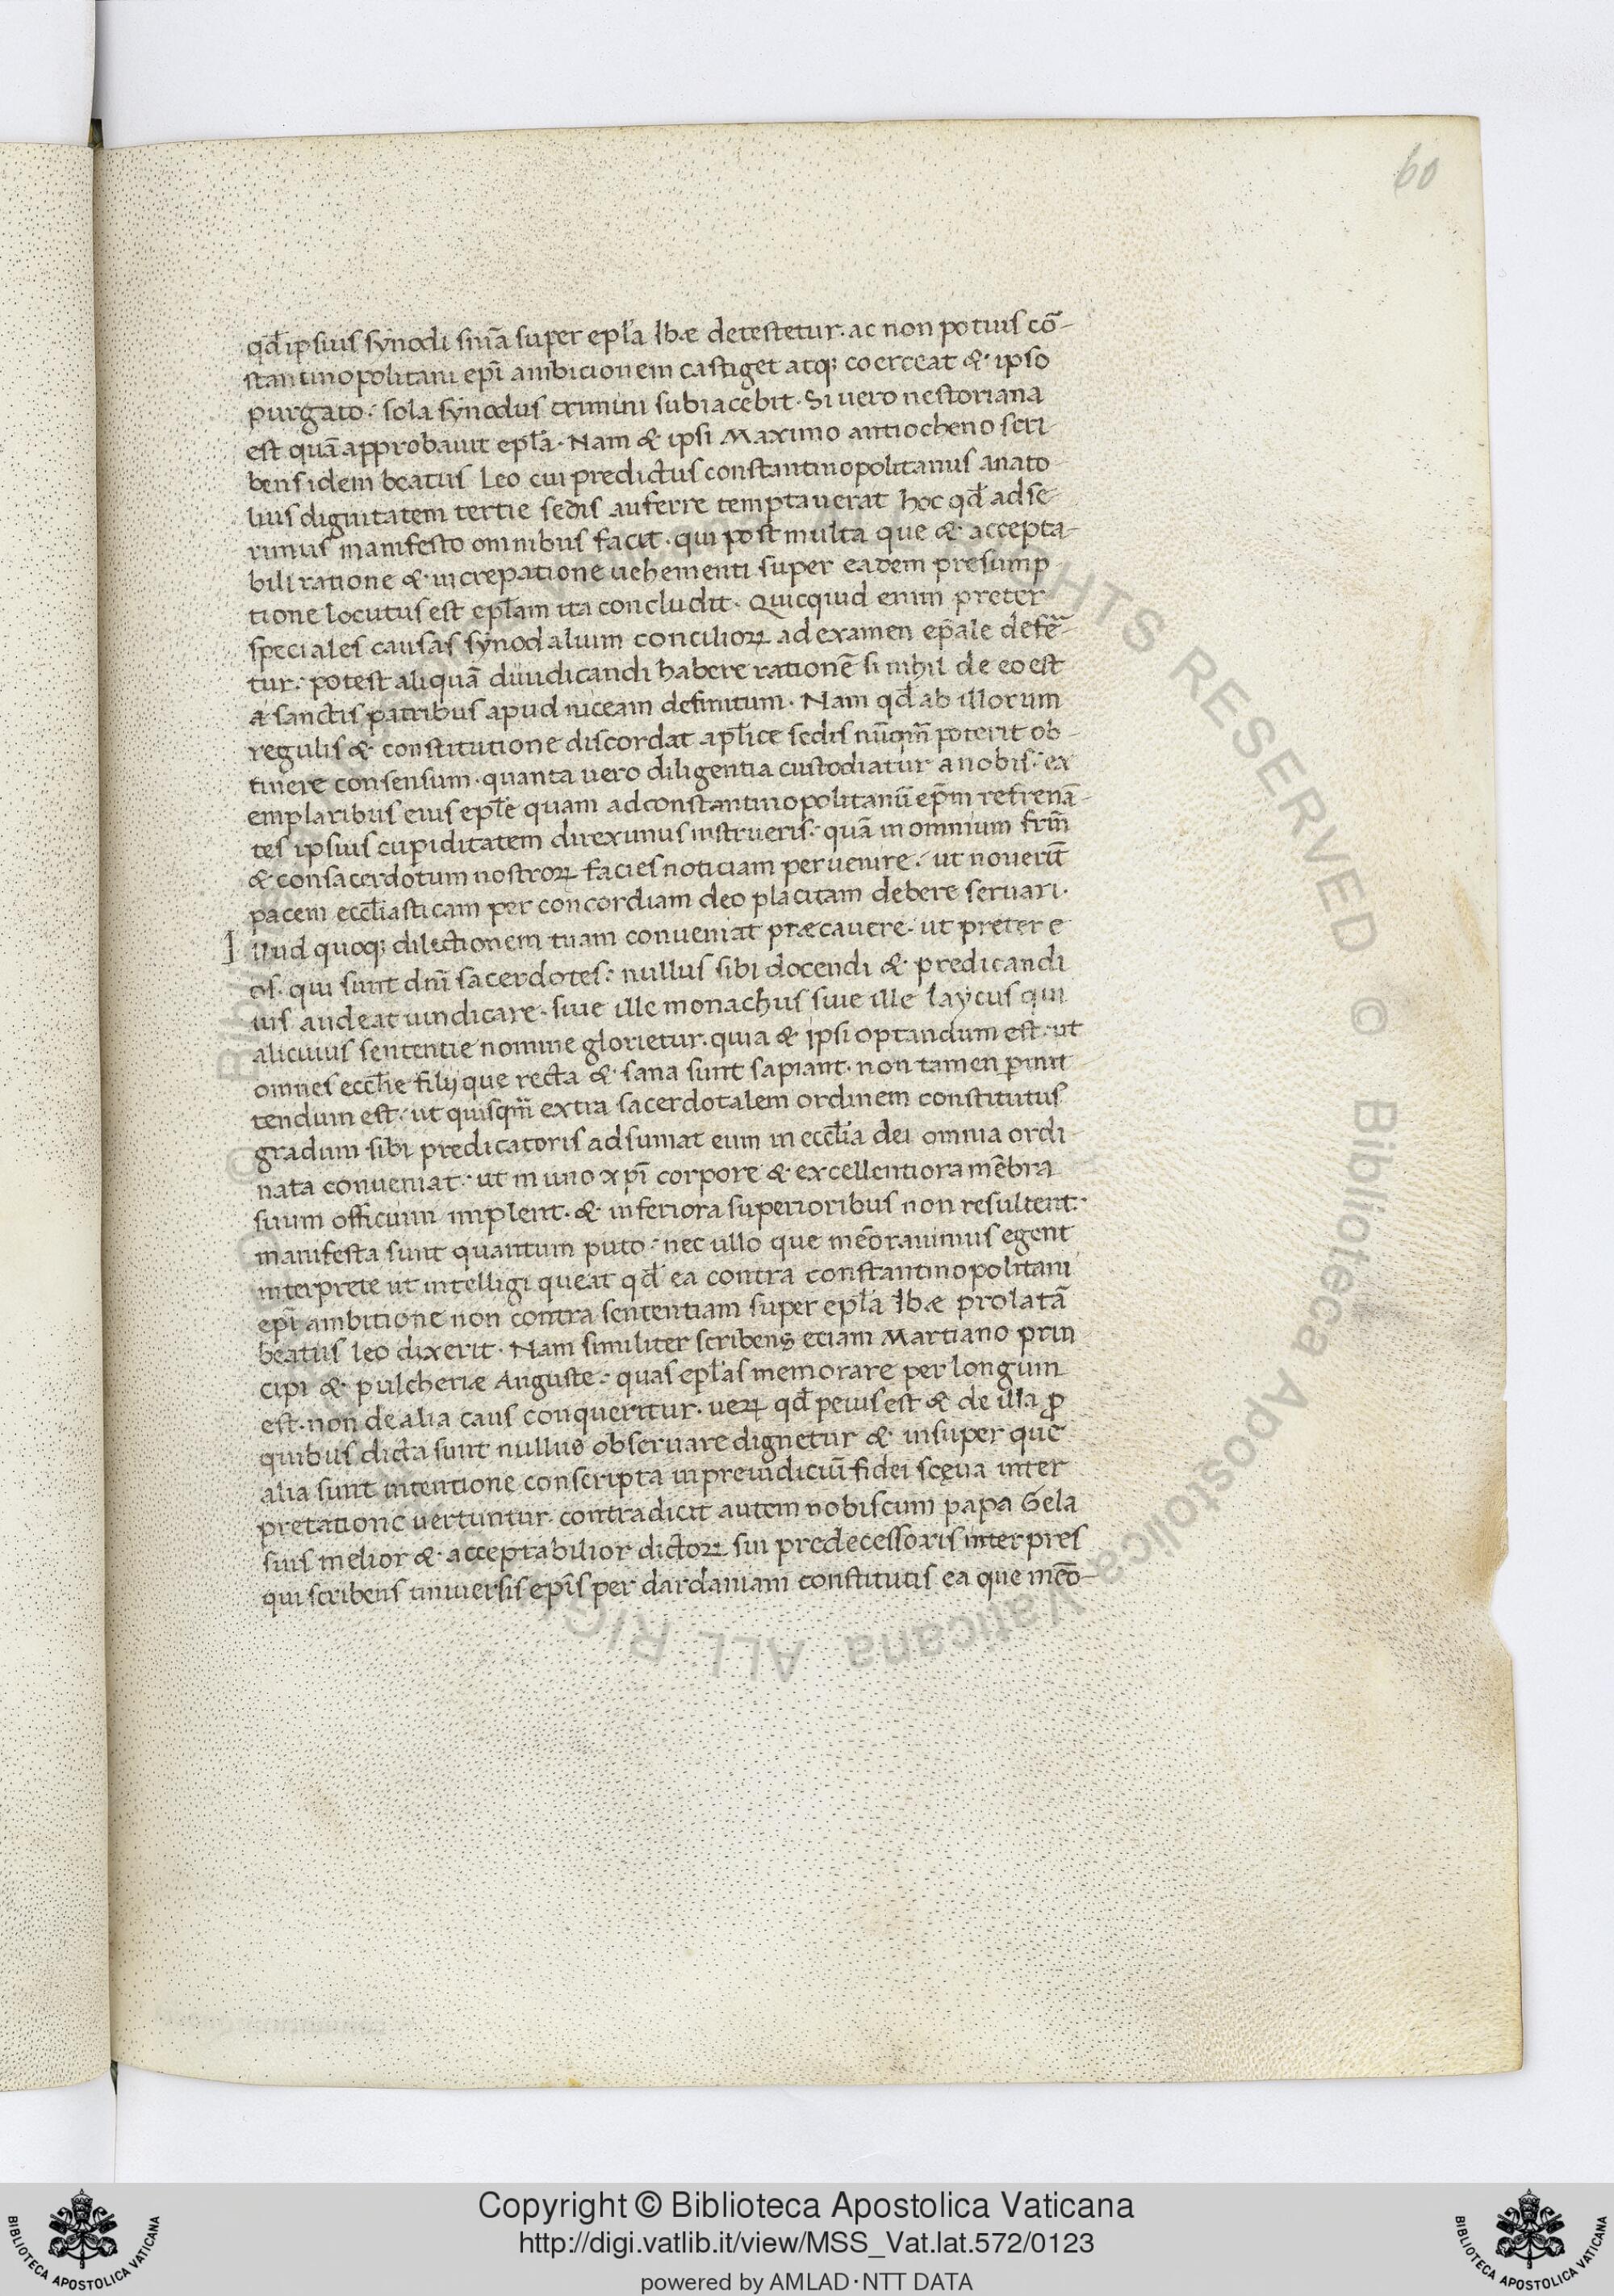 60
qd̄ ipsius synodi sniā super epl̄a Ibæ detestetur. ac non potius cō-
stantinopolitani epī ambicionem castiget atq; coerceat &. ipso
purgato: sola synodus crimini subiacebit. Si uero nestoriana
est quā approbauit epl̄a. Nam & ipsi Maximo antiocheno scri-
bens idem beatus Leo cui predictus constantinopolitanus anato-
lius dignitatem tertie sedis auferre temptauerat hoc qd̄ adse-
rimus manifesto omnibus facit. qui post multa que & accepta-
bili ratione & increpatione uehementi super eadem presump-
tione locutus est epl̄am ita concludit. Quicquid enim preter
speciales causas synodalium concilioꝝ ad examen ep̄ale defer̄-
tur: potest aliquā diiudicandi habere rationē si nihil de eo est
a sanctis patribus apud niceam definitum. Nam qd̄ ab illorum
regulis & constitutione discordat apl̄ice sedis nūqm̄ poterit ob-
tinere consensum. quanta uero diligentia custodiatur a nobis: ex
emplaribus eius epl̄e quam ad constantinopolitanū ep̄m refrenā-
tes ipsius cupiditatem direximus instrueris: quā in omnium frm̄
& consacerdotum nostroꝝ facies noticiam peruenire: ut nouerīt
pacem eccl̄iasticam per concordiam deo placitam debere seruari.
Illud quoq; dilectionem tuam conueniat præcauere: ut preter e
os. qui sunt dnī sacerdotes: nullus sibi docendi & predicandi
ius audeat uindicare. siue ille monachus siue ille laycus qui
alicuius sententie nomine glorietur. quia & ipsi optandum est: ut
omnes eccl̄ie filij que recta & sana sunt sapiant. non tamen ꝑmit
tendum est: ut quisqm̄ extra sacerdotalem ordinem constitutus
gradum sibi predicatoris adsumat eum in eccl̄ia dei omnia ordi-
nata conueniat: ut in uno xpī corpore & excellentiora mēbra
suum officium impleant. & inferiora superioribus non resultent:
manifesta sunt quantum puto: nec ullo que memōrauimus egent
interprete ut intelligi queat qd̄ ea contra constantinopolitani
epī ambitione non contra sententiam super epl̄a Ibæ prolatā
beatus leo dixerit. Nam similiter scribens etiam Martiano prin
cipi & pulcheriæ Auguste: quas epl̄as memorare per longum
est. non de alia caus conqueritur. ueꝝ qd̄ peius est & de illa ꝓ
quibus dicta sunt nullus obseruare dignetur & insuper que
alia sunt intentione conscripta in preiudiciū fidei scęua inter
pretatione uertuntur. contradicit autem nobiscum papa Gela
sius melior & acceptabilior dictoꝝ sui predecessoris interpres
qui scribens uniuersis epīs per dardaniam constitutis ea que memō-
© Biblioteca Apostolica Vaticana ALL RIGHTS RESERVED
Copyright © Biblioteca Apostolica Vaticana
http://digi.vatlib.it/view/MSS_Vat.lat.572/0123
powered by AMLAD·NTT DATA
BIBLIOTECA APOSTOLICA VATICANA
BIBLIOTECA APOSTOLICA VATICANA